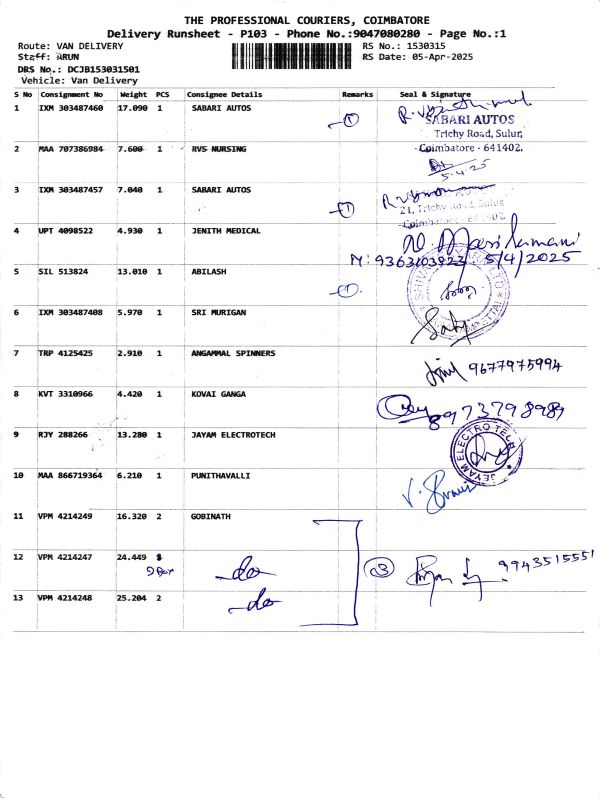 THE PROFESSIONAL COURIERS, COIMBATORE
Delivery Runsheet - P103 - Phone No.:9047080280 - Page No.:1
Route: VAN DELIVERY RS No.: 1530315
Staff: ARUN RS Date: 05-Apr-2025
DRS No.: DCJB153031501
Vehicle: Van Delivery
S No Consignment No Weight PCS Consignee Details Remarks Seal & Signature
1 IXM 303487460 17.090 1 SABARI AUTOS
SABARI AUTOS
Trichy Road, Sulur,
Coimbatore - 641402.
2 MAA 707386984 7.600 1 RVS NURSING
5.4.25
3 IXM 303487457 7.040 1 SABARI AUTOS 1
21, Trichy Road, Sulur
Coimbatore - 641402
4 UPT 4098522 4.930 1 JENITH MEDICAL
M: 9363103922 5/4/2025
5 SIL 513824 13.010 1 ABILASH 1
6 IXM 303487408 5.970 1 SRI MURIGAN
7 TRP 4125425 2.910 1 ANGAMMAL SPINNERS
9677975994
8 KVT 3310966 4.420 1 KOVAI GANGA
8973798989
9 RJY 288266 13.280 1 JAYAM ELECTROTECH
JEYAM ELECTRO TECH
10 MAA 866719364 6.210 1 PUNITHAVALLI
11 VPM 4214249 16.320 2 GOBINATH
12 VPM 4214247 24.449 do 3 9943515551
13 VPM 4214248 25.204 2 do